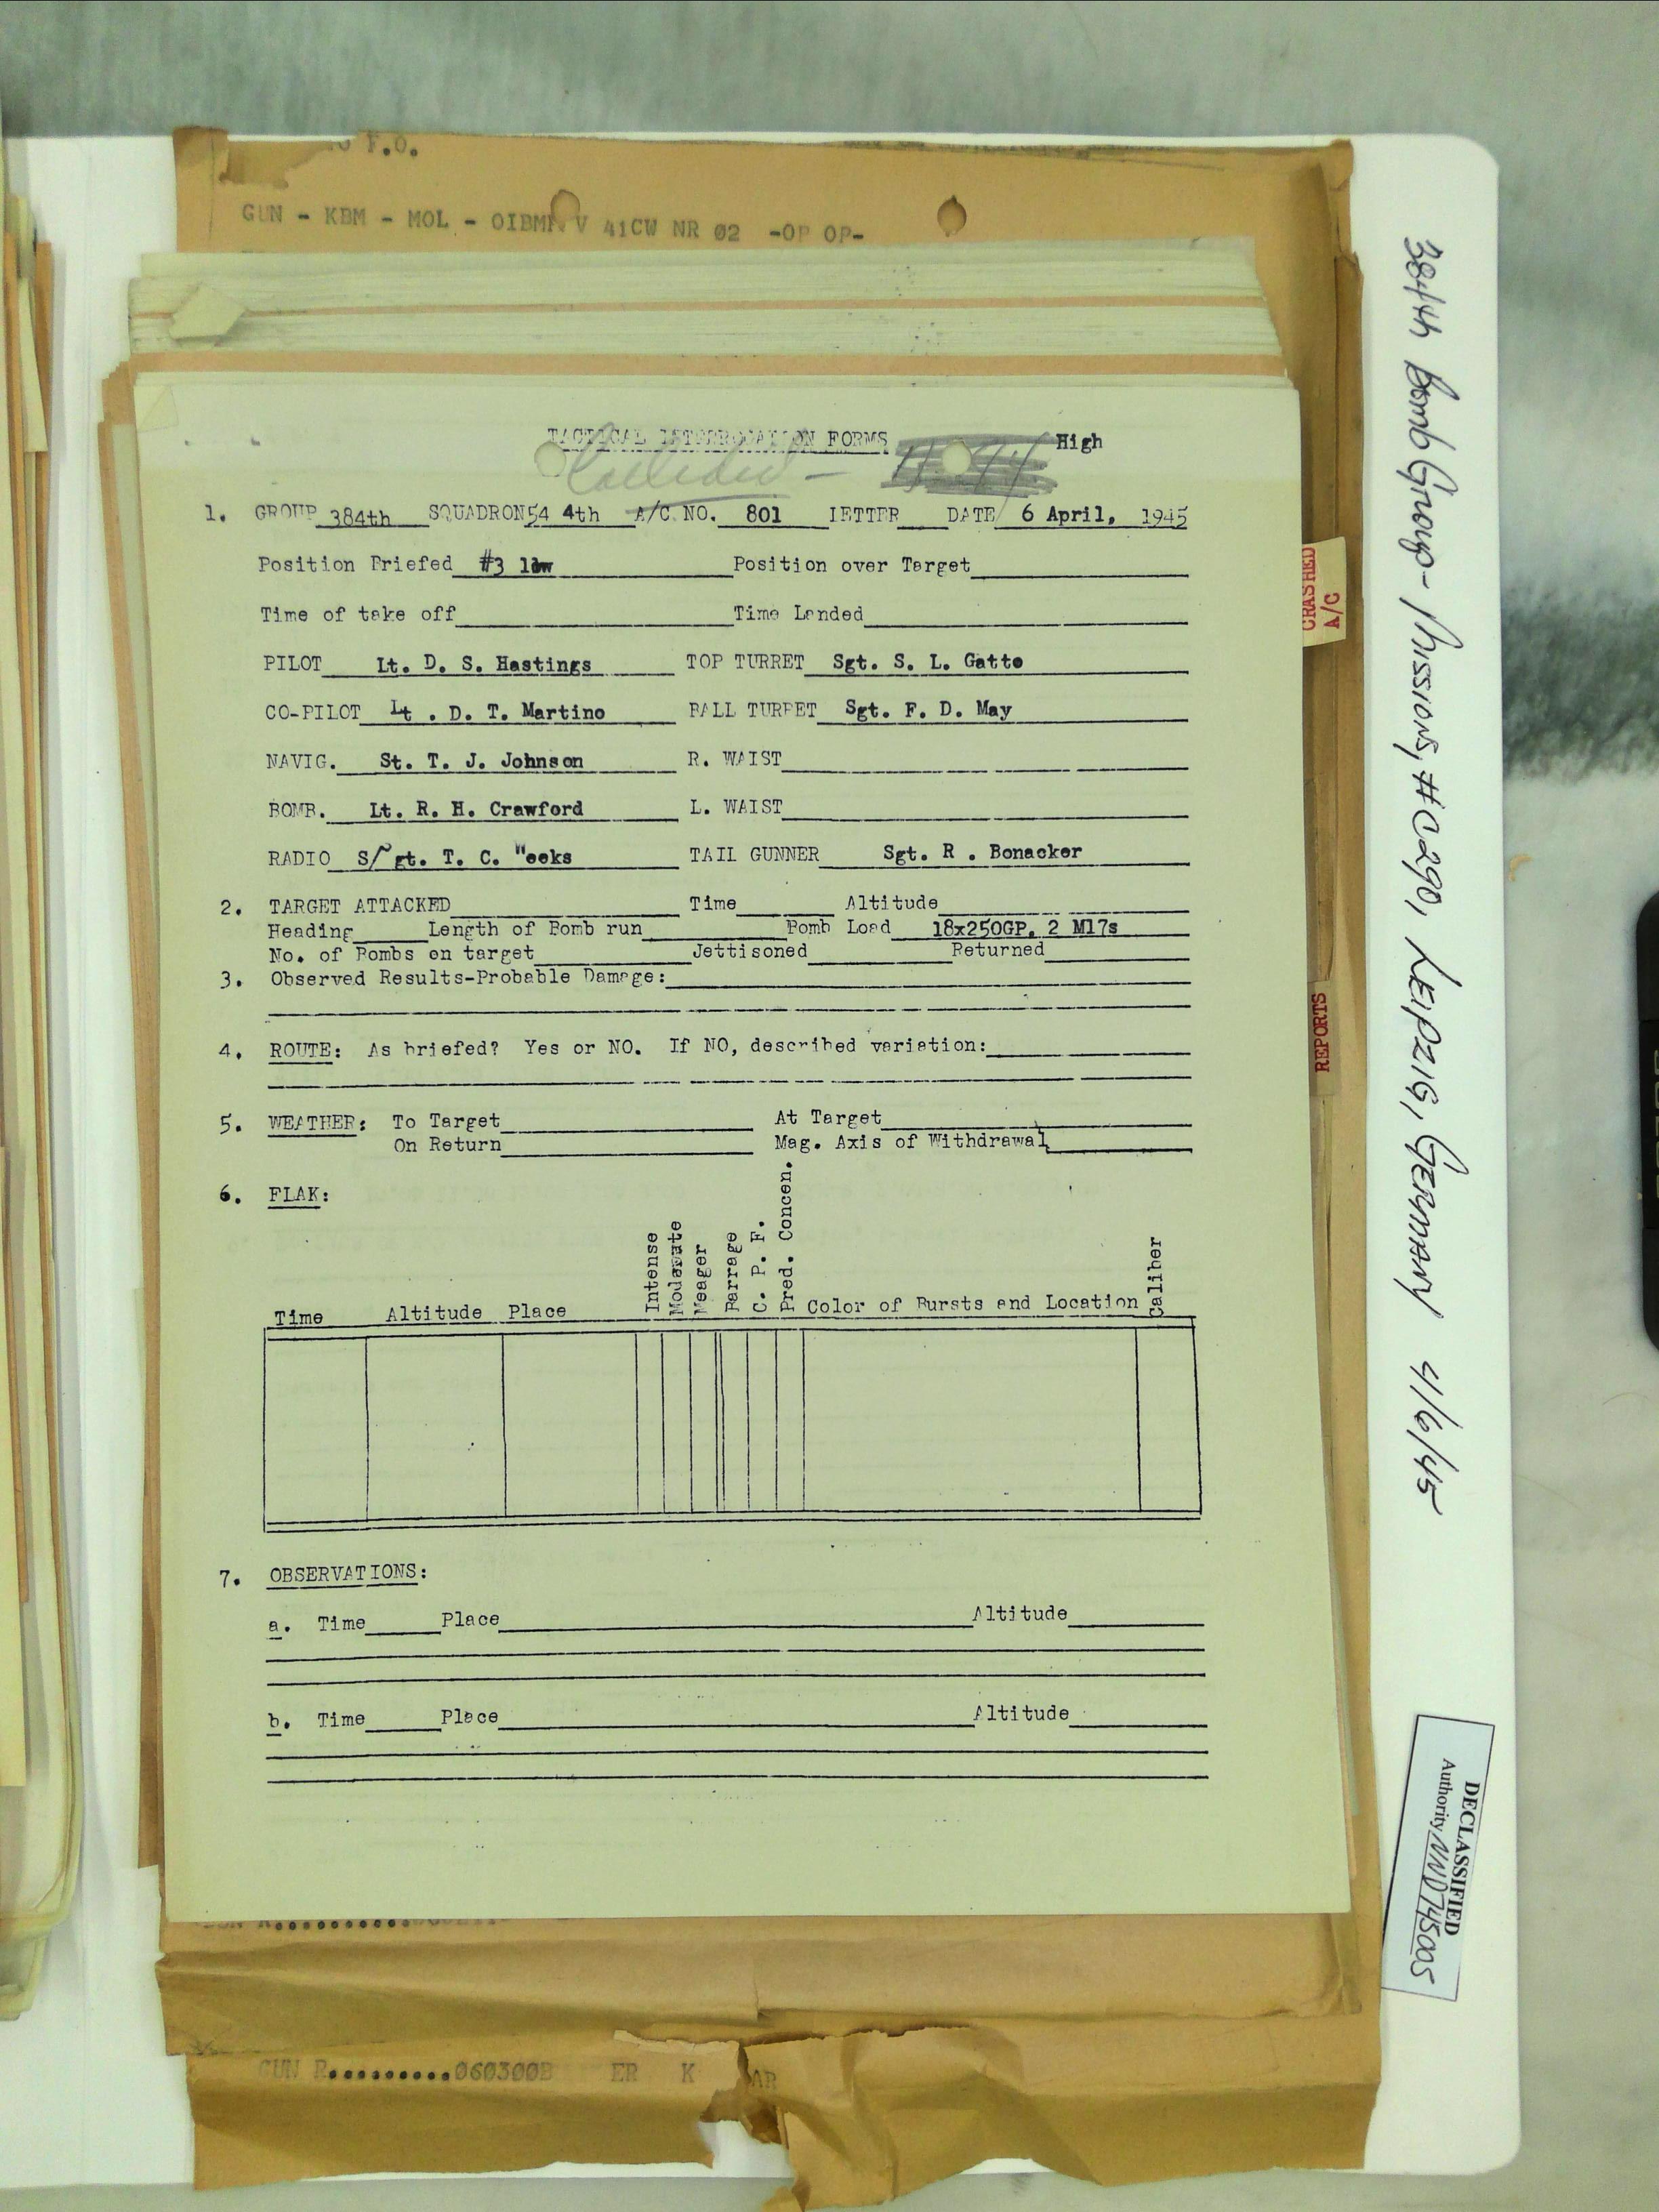 F.O.
GUN - KBM - MOL - OIBMR V 41CW NR 02 -OP OP-
TACTICAL INTERROGATION FORMS High
Collided -
1. GROUP 384th SQUADRON 54 4th A/C NO. 801 LETTER DATE 6 April, 1945
Position Briefed #3 low Position over Target
Time of take off Time Landed
PILOT Lt. D. S. Hastings TOP TURRET Sgt. S. L. Gatto
CO-PILOT Lt . D. T. Martino BALL TURRET Sgt. F. D. May
NAVIG. St. T. J. Johnson R. WAIST
BOMB. Lt. R. H. Crawford L. WAIST
RADIO S/ gt. T. C. Weeks TAIL GUNNER Sgt. R . Bonacker
2. TARGET ATTACKED Time Altitude
Heading Length of Bomb run Bomb Load 18x250GP. 2 M17s
No. of Bombs on target Jettisoned Returned
3. Observed Results-Probable Damage:
4. ROUTE: As briefed? Yes or NO. If NO, described variation:
5. WEATHER: To Target At Target
On Return Mag. Axis of Withdrawal
6. FLAK:
Time Altitude Place Intense Moderate Meager Barrage C. P. F. Pred. Concen. Color of Bursts and Location Caliber
7. OBSERVATIONS:
a. Time Place Altitude
b. Time Place Altitude
GUN R..........060300B ER K AR
CRASHED
A/C
REPORTS
384th Bomb Group - Missions, #C290, LEIPZIG, GERMANY 4/6/45
DECLASSIFIED
Authority NND745005